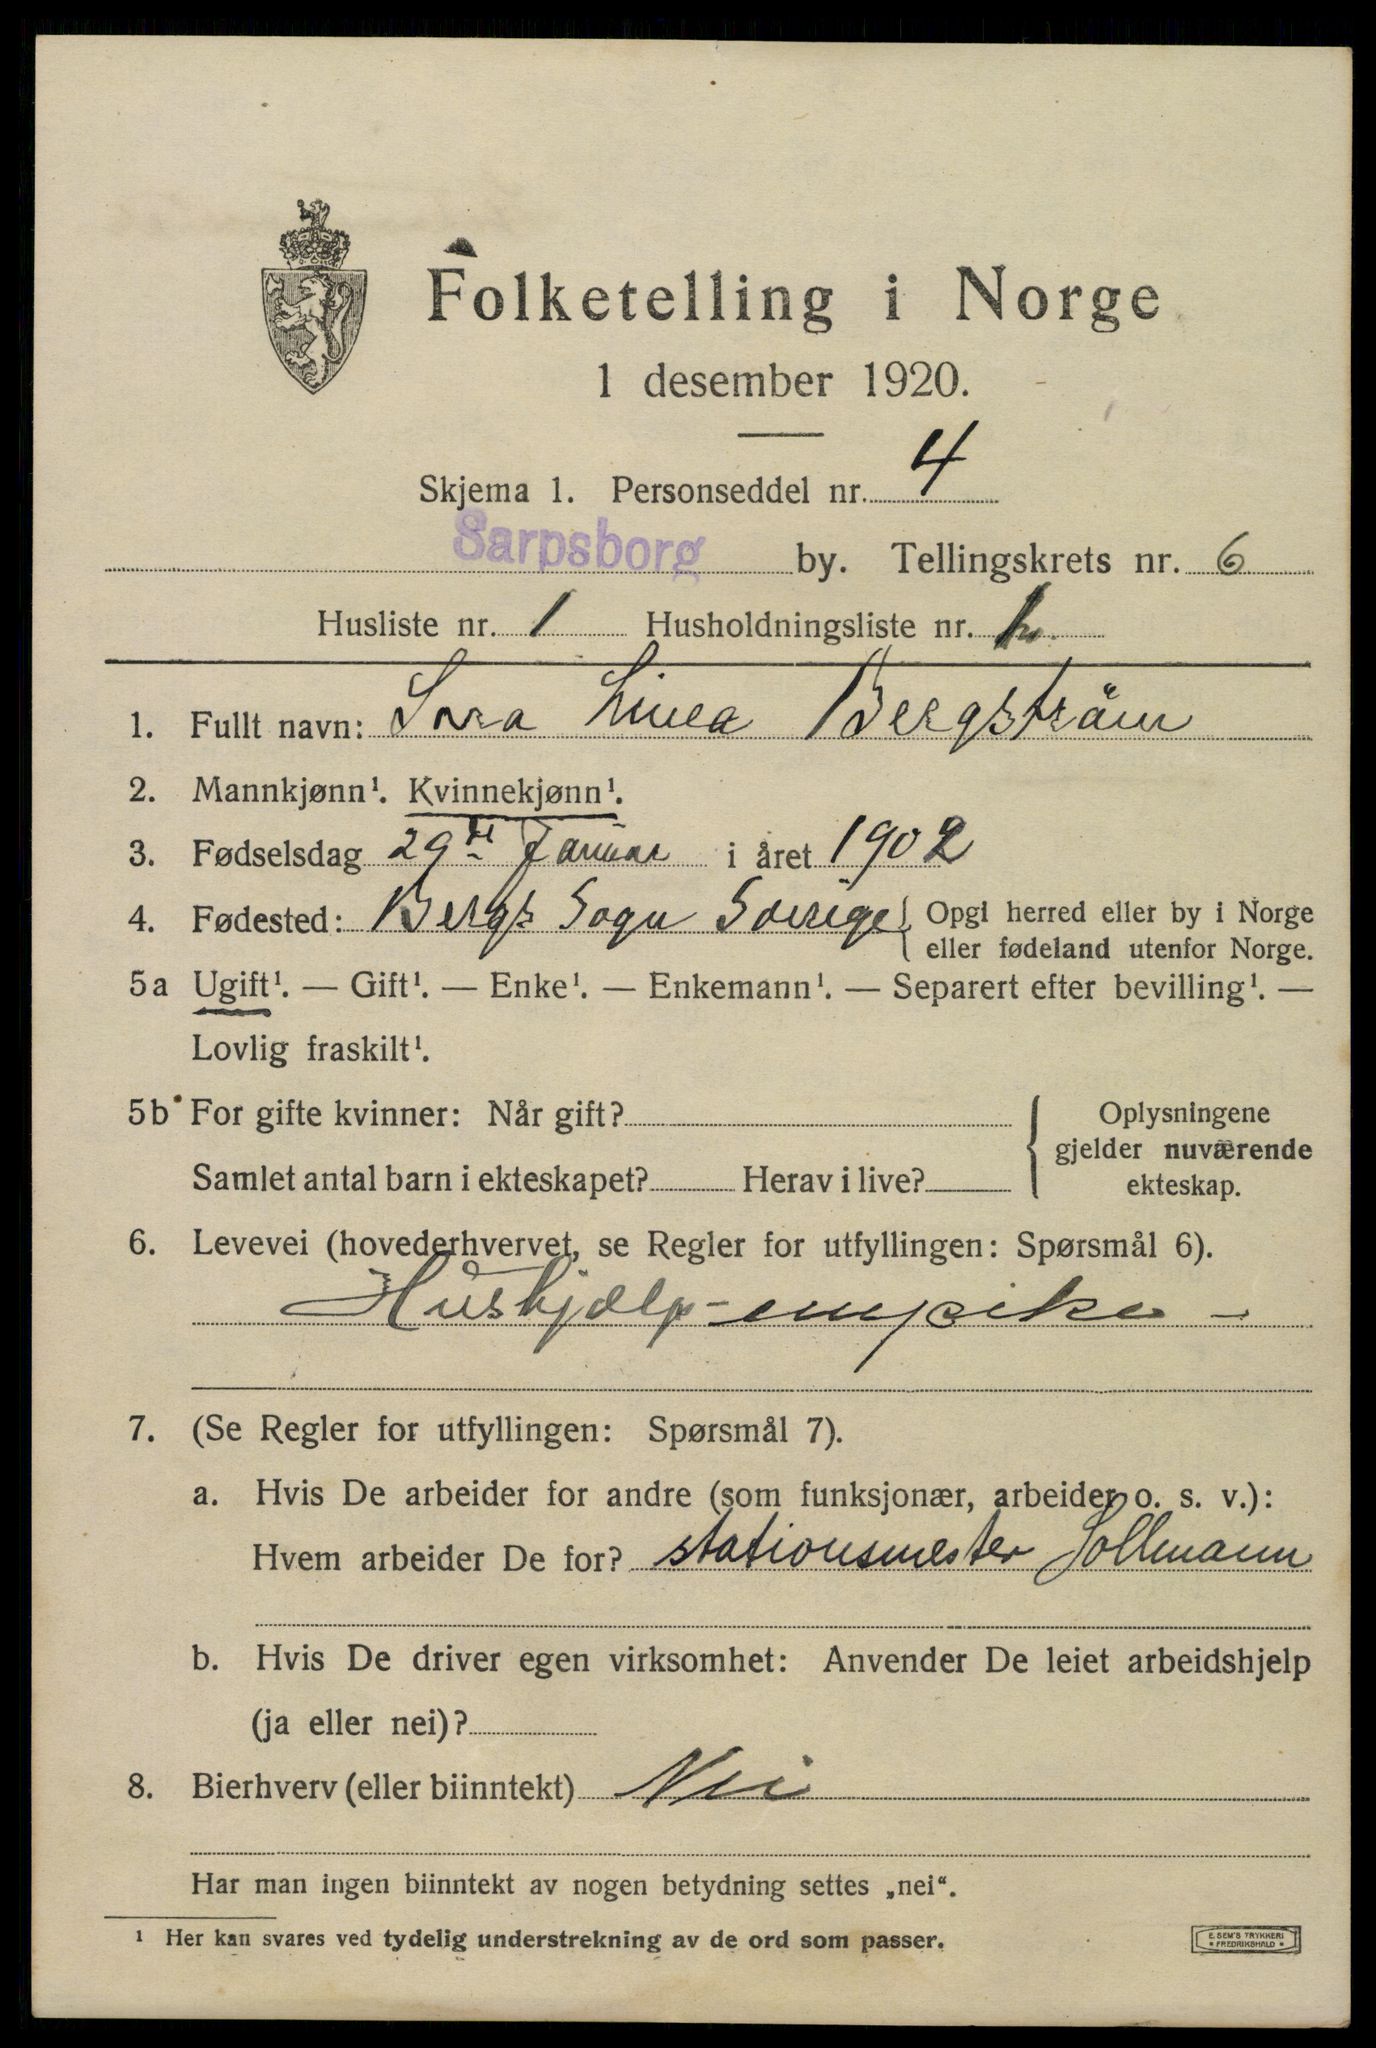 Folketelling i Norge
1 desember 1920.
Skjema 1. Personseddel nr. 4
Sarpsborg by. Tellingskrets nr. 6
Husliste nr. 1 Husholdningsliste nr.
1. Fullt navn: Sara Linea Bergström
2. Mannkjønn¹. Kvinnekjønn¹.
3. Fødselsdag 29de Januar i året 1902
4. Fødested: Bergs Sogn Sverige { Opgi herred eller by i Norge
eller fødeland utenfor Norge.
5a Ugift¹. — Gift¹. — Enke¹. — Enkemann¹. — Separert efter bevilling¹. —
Lovlig fraskilt¹.
5b For gifte kvinner: Når gift?
Samlet antal barn i ekteskapet? Herav i live?
Oplysningene
gjelder nuværende
ekteskap.
6. Levevei (hovederhvervet, se Regler for utfyllingen: Spørsmål 6).
Hushjælp-
7. (Se Regler for utfyllingen: Spørsmål 7).
a. Hvis De arbeider for andre (som funksjonær, arbeider o. s. v.):
Hvem arbeider De for? stationsmester Sollmann
b. Hvis De driver egen virksomhet: Anvender De leiet arbeidshjelp
(ja eller nei)?
8. Bierhverv (eller biinntekt) Nei
Har man ingen biinntekt av nogen betydning settes „nei“.
¹ Her kan svares ved tydelig understrekning av de ord som passer.
E. SEM'S TRYKKERI
* FREDRIKSHALD *